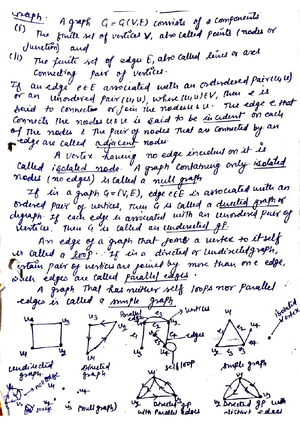 Graph: A graph G = G(V,E) consists of 2 components
(i) The finite set of vertices V, also called points (nodes or
Junction) and
(ii) The finite set of edge E, also called lines or arcs
connecting pair of vertices.
If an edge e∈E associated with an ordered pair (u,v)
or an unordered pair (u,v), where (u,v)∈V, then e is
said to connect or join the nodes u & v. The edge e that
connects the nodes u & v is said to be incident on each
of the nodes & the pair of nodes that are connected by an
edge are called adjacent nodes.
A vertex having no edge incident on it is
called isolated node. A graph containing only isolated
nodes (no edges) is called a null graph
If in a graph G=(V,E), edge e∈E is associated with an
ordered pair of vertices, then G is called a directed graph or
digraph. If each edge is associated with an unordered pair of
vertices. Then G is called an undirected gp.
An edge of a graph that joins a vertex to itself
is called a loop. If in a directed or undirected graph,
certain pair of vertices are joined by more than one edge,
such edges are called parallel edges.
A graph that has neither self loops nor parallel
edges is called a simple graph
Parallel
vertices
edges
self loop
isolated vertex
Undirected graph
Directed graph
simple graph
(null graph)
Directed gp with Parallel edges
Directed gp with distinct edges